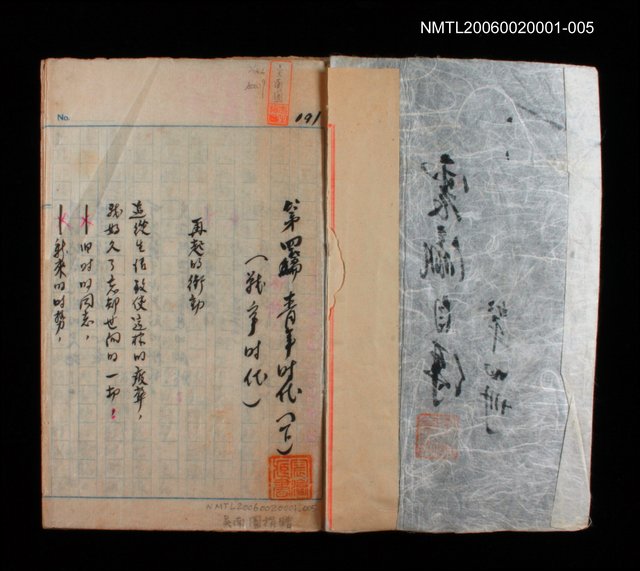 NMTL20060020001-005
No.
091
第四編 青年时代(下)
(战争时代)
再起的衝動
这從生活致使这樣的疲弊,
战好久了忘却世间的一切!
旧时的同志,
新来的时势,
NMTL20060020001-005
吳南圖捐贈
雲瀛自傳
第四冊